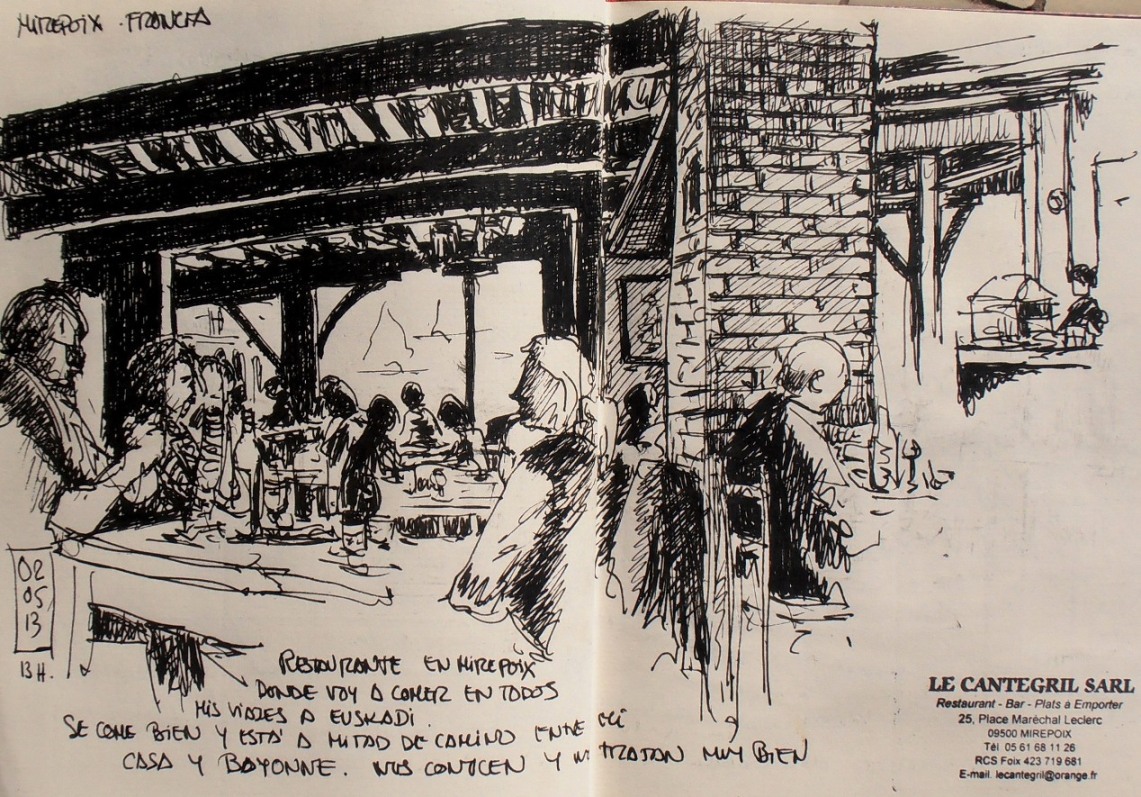 MIREPOIX . FRANCIA
02
05
13
13 H.
RESTAURANTE EN MIREPOIX
DONDE VOY A COMER EN TODOS
MIS VIAJES A EUSKADI.
SE COME BIEN Y ESTÁ A MITAD DE CAMINO ENTRE MI
CASA Y BAYONNE. NOS CONOCEN Y NOS TRATAN MUY BIEN
LE CANTEGRIL SARL
Restaurant - Bar - Plats à Emporter
25, Place Maréchal Leclerc
09500 MIREPOIX
Tél 05 61 68 11 26
RCS Foix 423 719 681
E-mail. lecantegril@orange.fr